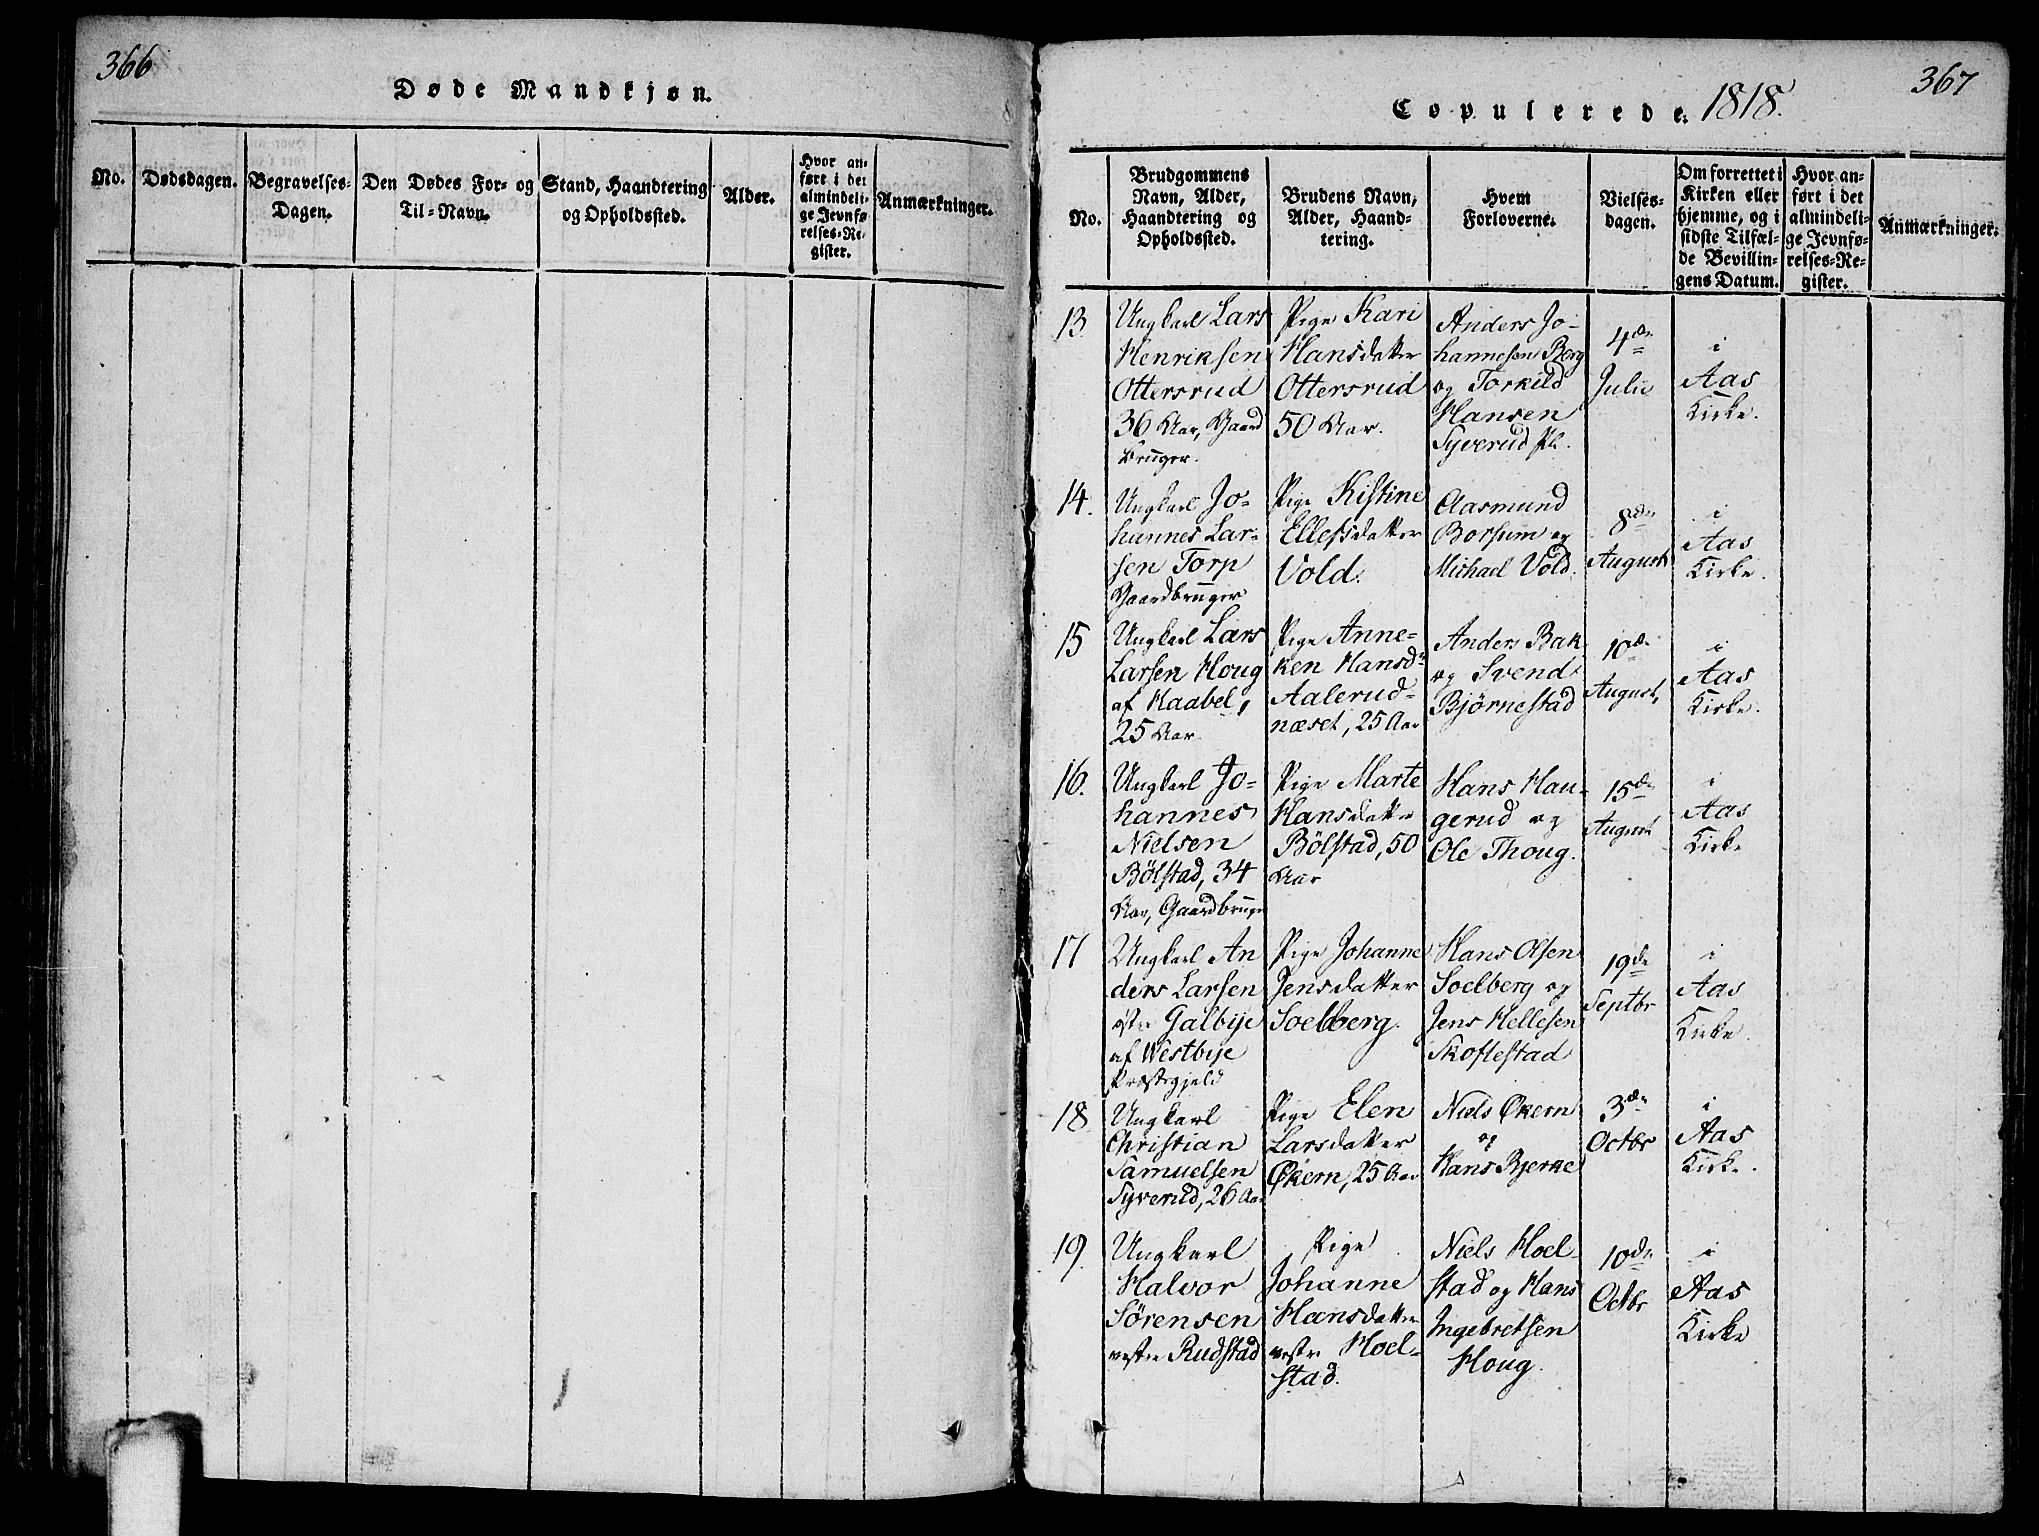 366
Døde Mandkjøn.
No.
Dødsdagen.
Begravelses-
Dagen.
Den Dødes For- og
Til-Navn.
Stand, Haandtering
og Opholdssted.
Alder.
Hvor an-
ført i det
almindeli-
ge Jevnfø-
relses-Re-
gister.
Anmærkninger.
367
Copulerede. 1818.
No.
Brudgommens
Navn, Alder,
Haandtering og
Opholdssted.
Brudens Navn,
Alder, Haand-
tering.
Hvem
Forloverne.
Vielses-
dagen.
Om forrettet i
Kirken eller
hjemme, og i
sidste Tilfæl-
de Bevillin-
gens Datum.
Hvor an-
ført i det
almindeli-
ge Jevnfø-
relses-Re-
gister.
Anmærkninger.
13
Ungkarl Lars
Henriksen
Ottersrud
36 Aar, Gaard
bruger.
Pige Kari
Hansdatter
Ottersrud
50 Aar.
Anders Jo-
hannesen Berg
og Torkild
Hansen
Syverud Pl.
4de
Julii
i
Aas
Kirke.
14.
Ungkarl Jo-
hannes Lar-
sen Torp
Gaardbruger
Pige Kistine
Ellefsdatter
Vold.
Aasmund
Borsum og
Michael Vold.
8de
August
i
Aas
Kirke.
15
Ungkarl Lars
Larsen Houg
af Kaabel,
25 Aar
Pige Anne-
ken Hansdr
Aalerud-
næset, 25 Aar
Anders Bak
og Svend
Bjørnestad
10de
August,
i
Aas
Kirke.
16.
Ungkarl Jo-
hannes
Nielsen
Bölstad, 34
Aar, Gaardbruger
Pige Marte
Hansdatter
Bölstad, 50
Aar
Hans Hau-
gerud og
Ole Thoug.
15de
August
i
Aas
Kirke
17
Ungkarl An
ders Larsen
østr Galbije
af Westbije
Præstegjeld
Pige Johanne
Jensdatter
Soelberg.
Hans Olsen
Soelberg og
Jens Hellesen
Skoflestad
19de
Septbr
i
Aas
Kirke.
18
Ungkarl
Christian
Samuelsen
Syverud, 26 Aar
Pige Elen
Larsdatter
Økern, 25 Aar
Niels Økern
og
Hans Bjerke
3de
Octbr
i
Aas
Kirke.
19.
Ungkarl
Halvor
Sørensen
vestre Rudstad
Pige
Johanne
Hansdatter
vestr Hoel-
stad.
Niels Hoel
stad og Hans
Ingebretsen
Houg.
10de
Octbr
i
Aas
Kirke